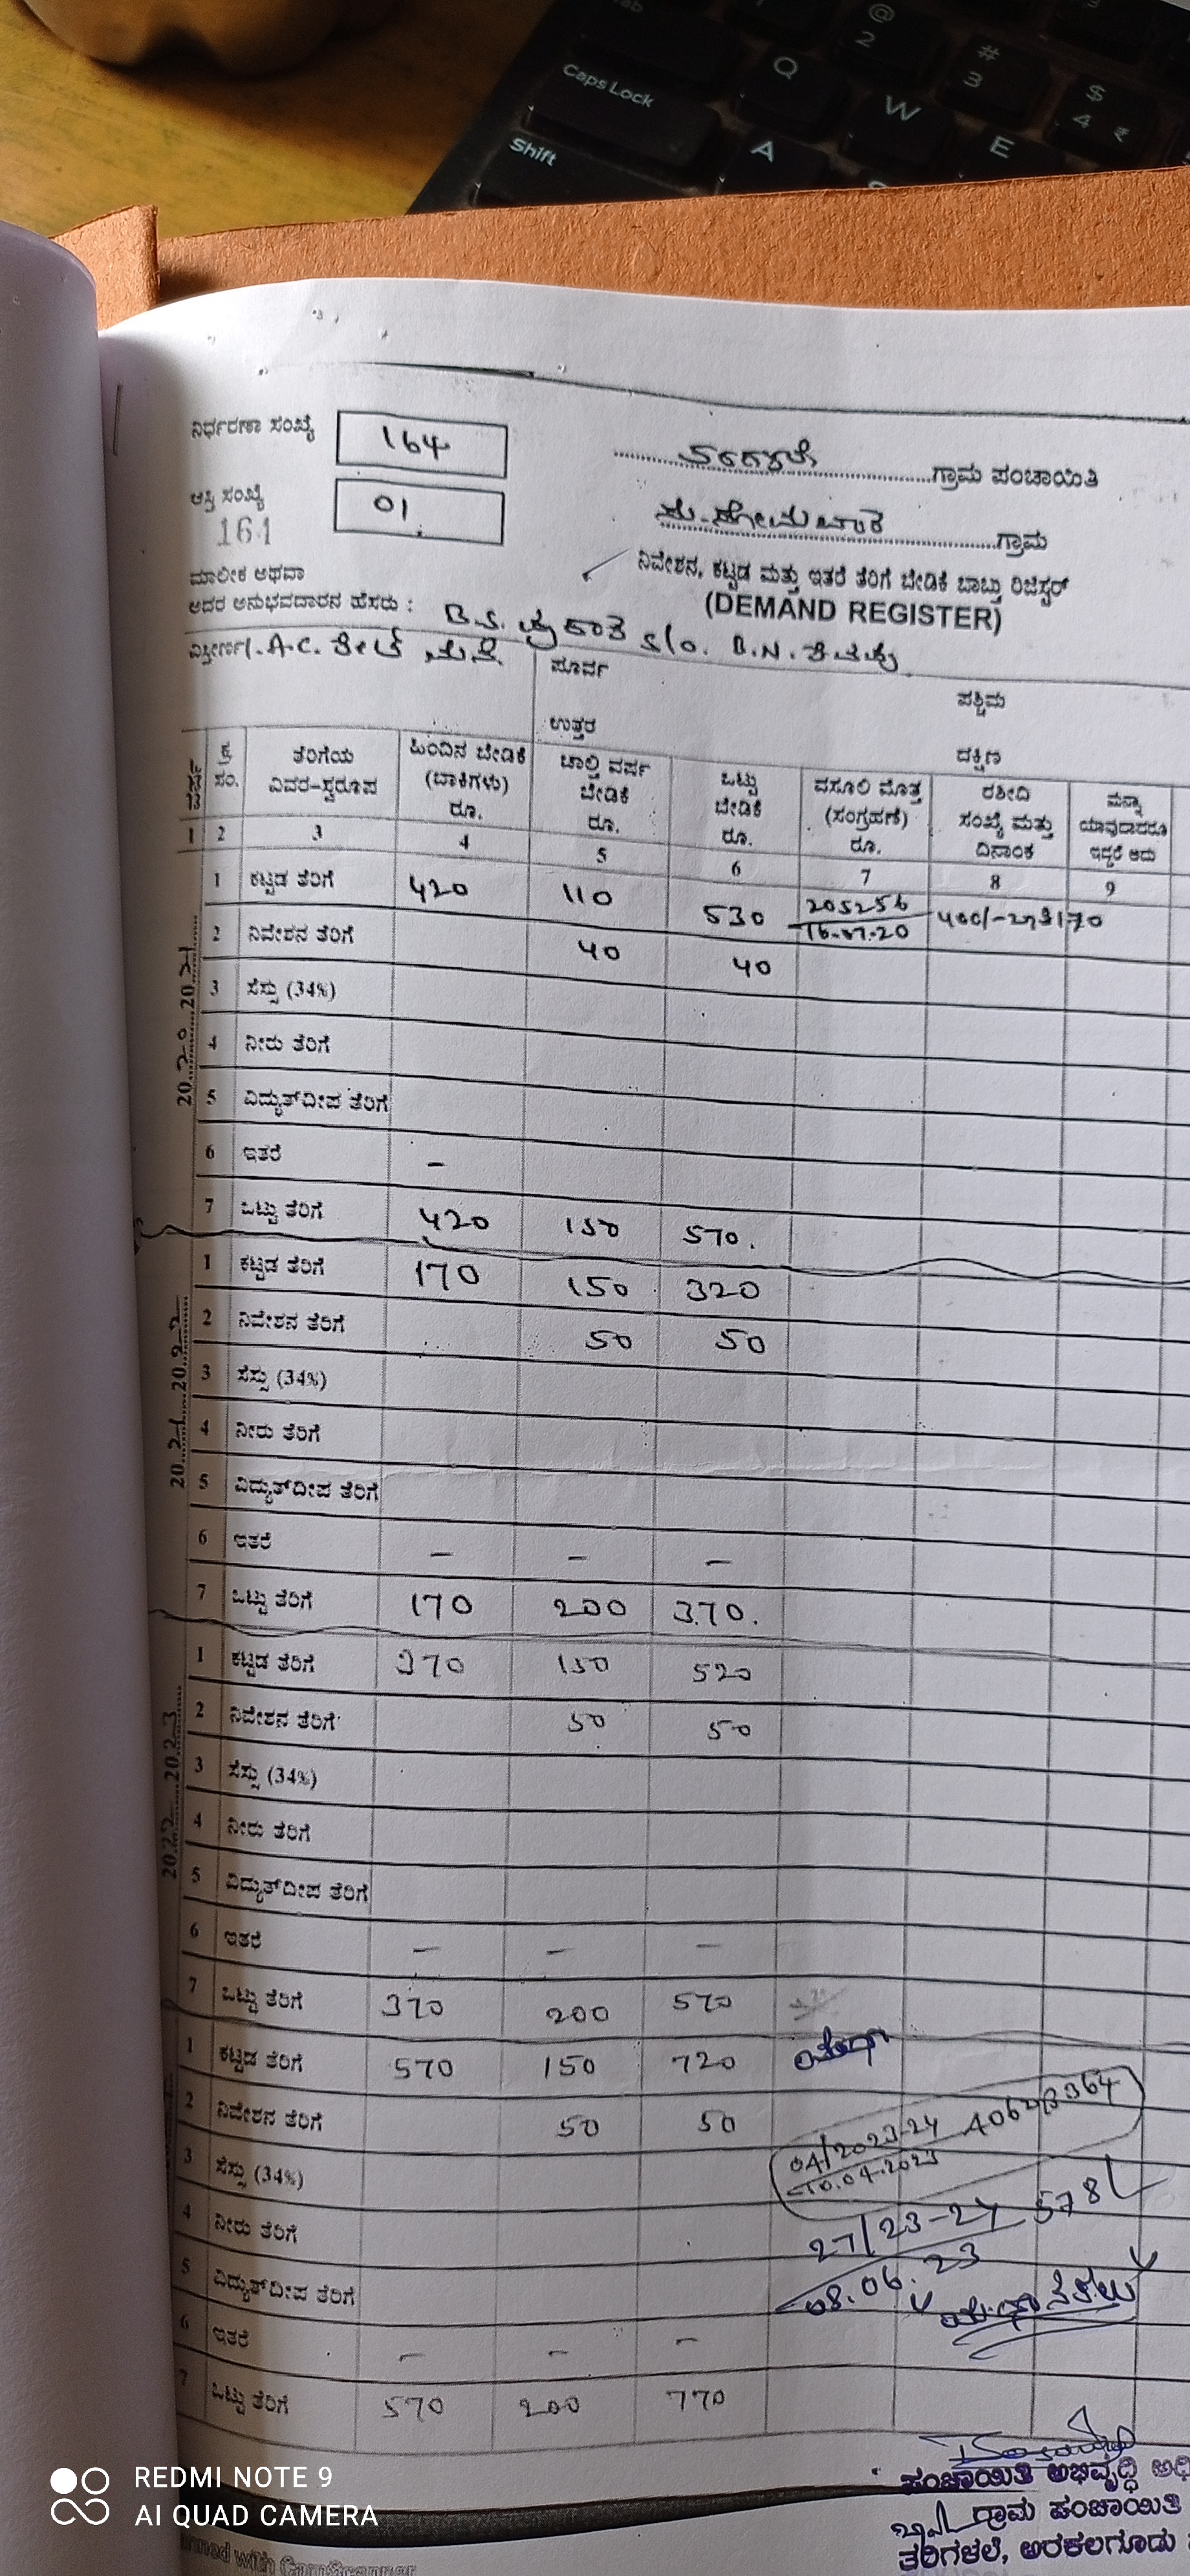 Tab
@
2
#
3
$
4 ₹
Caps Lock
Q
W
E
Shift
A
ನಿರ್ಧರಣಾ ಸಂಖ್ಯೆ 164
ಗ್ರಾಮ ಪಂಚಾಯಿತಿ
ಆಸ್ತಿ ಸಂಖ್ಯೆ 01
161
ಗ್ರಾಮ
ಮಾಲೀಕ ಅಥವಾ
ನಿವೇಶನ, ಕಟ್ಟಡ ಮತ್ತು ಇತರೆ ತೆರಿಗೆ ಬೇಡಿಕೆ ಬಾಬ್ತು ರಿಜಿಸ್ಟರ್
(DEMAND REGISTER)
ಅದರ ಅನುಭವದಾರನ ಹೆಸರು : B.S. ಪ್ರಕಾಶ S/o. B.N.
ವಿಸ್ತೀರ್ಣ A.C. ಶೀಟ್ ಮನೆ
ಪೂರ್ವ ಪಶ್ಚಿಮ
ಉತ್ತರ ದಕ್ಷಿಣ
ವರ್ಷ ಕ್ರ ಸಂ. ತೆರಿಗೆಯ ವಿವರ-ಸ್ವರೂಪ ಹಿಂದಿನ ಬೇಡಿಕೆ (ಬಾಕಿಗಳು) ರೂ. ಚಾಲ್ತಿ ವರ್ಷ ಬೇಡಿಕೆ ರೂ. ಒಟ್ಟು ಬೇಡಿಕೆ ರೂ. ವಸೂಲಿ ಮೊತ್ತ (ಸಂಗ್ರಹಣೆ) ರೂ. ರಶೀದಿ ಸಂಖ್ಯೆ ಮತ್ತು ದಿನಾಂಕ ಮನ್ನಾ ಯಾವುದಾದರೂ ಇದ್ದರೆ ಅದು
1 2 3 4 5 6 7 8 9
2020 2021
1 ಕಟ್ಟಡ ತೆರಿಗೆ 420 110 530 205256
2 ನಿವೇಶನ ತೆರಿಗೆ 40 40
3 ಸೆಸ್ಸು (34%)
4 ನೀರು ತೆರಿಗೆ
5 ವಿದ್ಯುತ್‌ದೀಪ ತೆರಿಗೆ
6 ಇತರೆ –
7 ಒಟ್ಟು ತೆರಿಗೆ 420 150 570.
2021 2022
1 ಕಟ್ಟಡ ತೆರಿಗೆ 170 150 320
2 ನಿವೇಶನ ತೆರಿಗೆ 50 50
3 ಸೆಸ್ಸು (34%)
4 ನೀರು ತೆರಿಗೆ
5 ವಿದ್ಯುತ್‌ದೀಪ ತೆರಿಗೆ
6 ಇತರೆ – – –
7 ಒಟ್ಟು ತೆರಿಗೆ 170 200 370.
2022 2023
1 ಕಟ್ಟಡ ತೆರಿಗೆ 370 150 520
2 ನಿವೇಶನ ತೆರಿಗೆ 50 50
3 ಸೆಸ್ಸು (34%)
4 ನೀರು ತೆರಿಗೆ
5 ವಿದ್ಯುತ್‌ದೀಪ ತೆರಿಗೆ
6 ಇತರೆ – – –
7 ಒಟ್ಟು ತೆರಿಗೆ 370 200 570
1 ಕಟ್ಟಡ ತೆರಿಗೆ 570 150 720
2 ನಿವೇಶನ ತೆರಿಗೆ 50 50
04/2023-24
10.04.2023
3 ಸೆಸ್ಸು (34%)
4 ನೀರು ತೆರಿಗೆ
27/23-24 578/
08.06.23
5 ವಿದ್ಯುತ್‌ದೀಪ ತೆರಿಗೆ
6 ಇತರೆ – – –
7 ಒಟ್ಟು ತೆರಿಗೆ 570 200 770
ಪಂಚಾಯಿತಿ ಅಭಿವೃದ್ಧಿ
ಗ್ರಾಮ ಪಂಚಾಯಿತಿ
ತರಿಗಳಲೆ, ಅರಕಲಗೂಡು
REDMI NOTE 9
AI QUAD CAMERA
with CamScanner